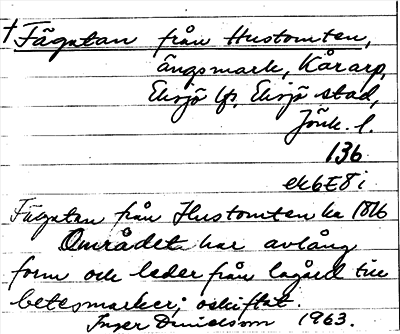 † Fägatan från Hustomten,
ängsmark, Kårarp,
Eksjö lfs, Eksjö stad,
Jönk. l.
136
ek6E8i
Fägatan från Hustomten ha 1816
Området har avlång
form och leder från lagård till
betesmarker; oskiftat.
Inger Danielsson 1963.